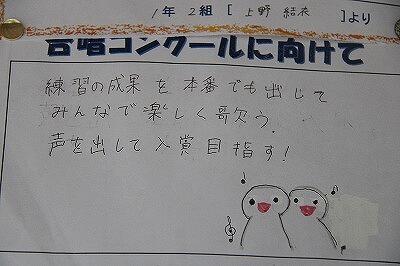 1年 2組 [ 上野 結衣 ]より
合唱コンクールに向けて
練習の成果を本番でも出して
みんなで楽しく歌う.
声を出して入賞目指す!